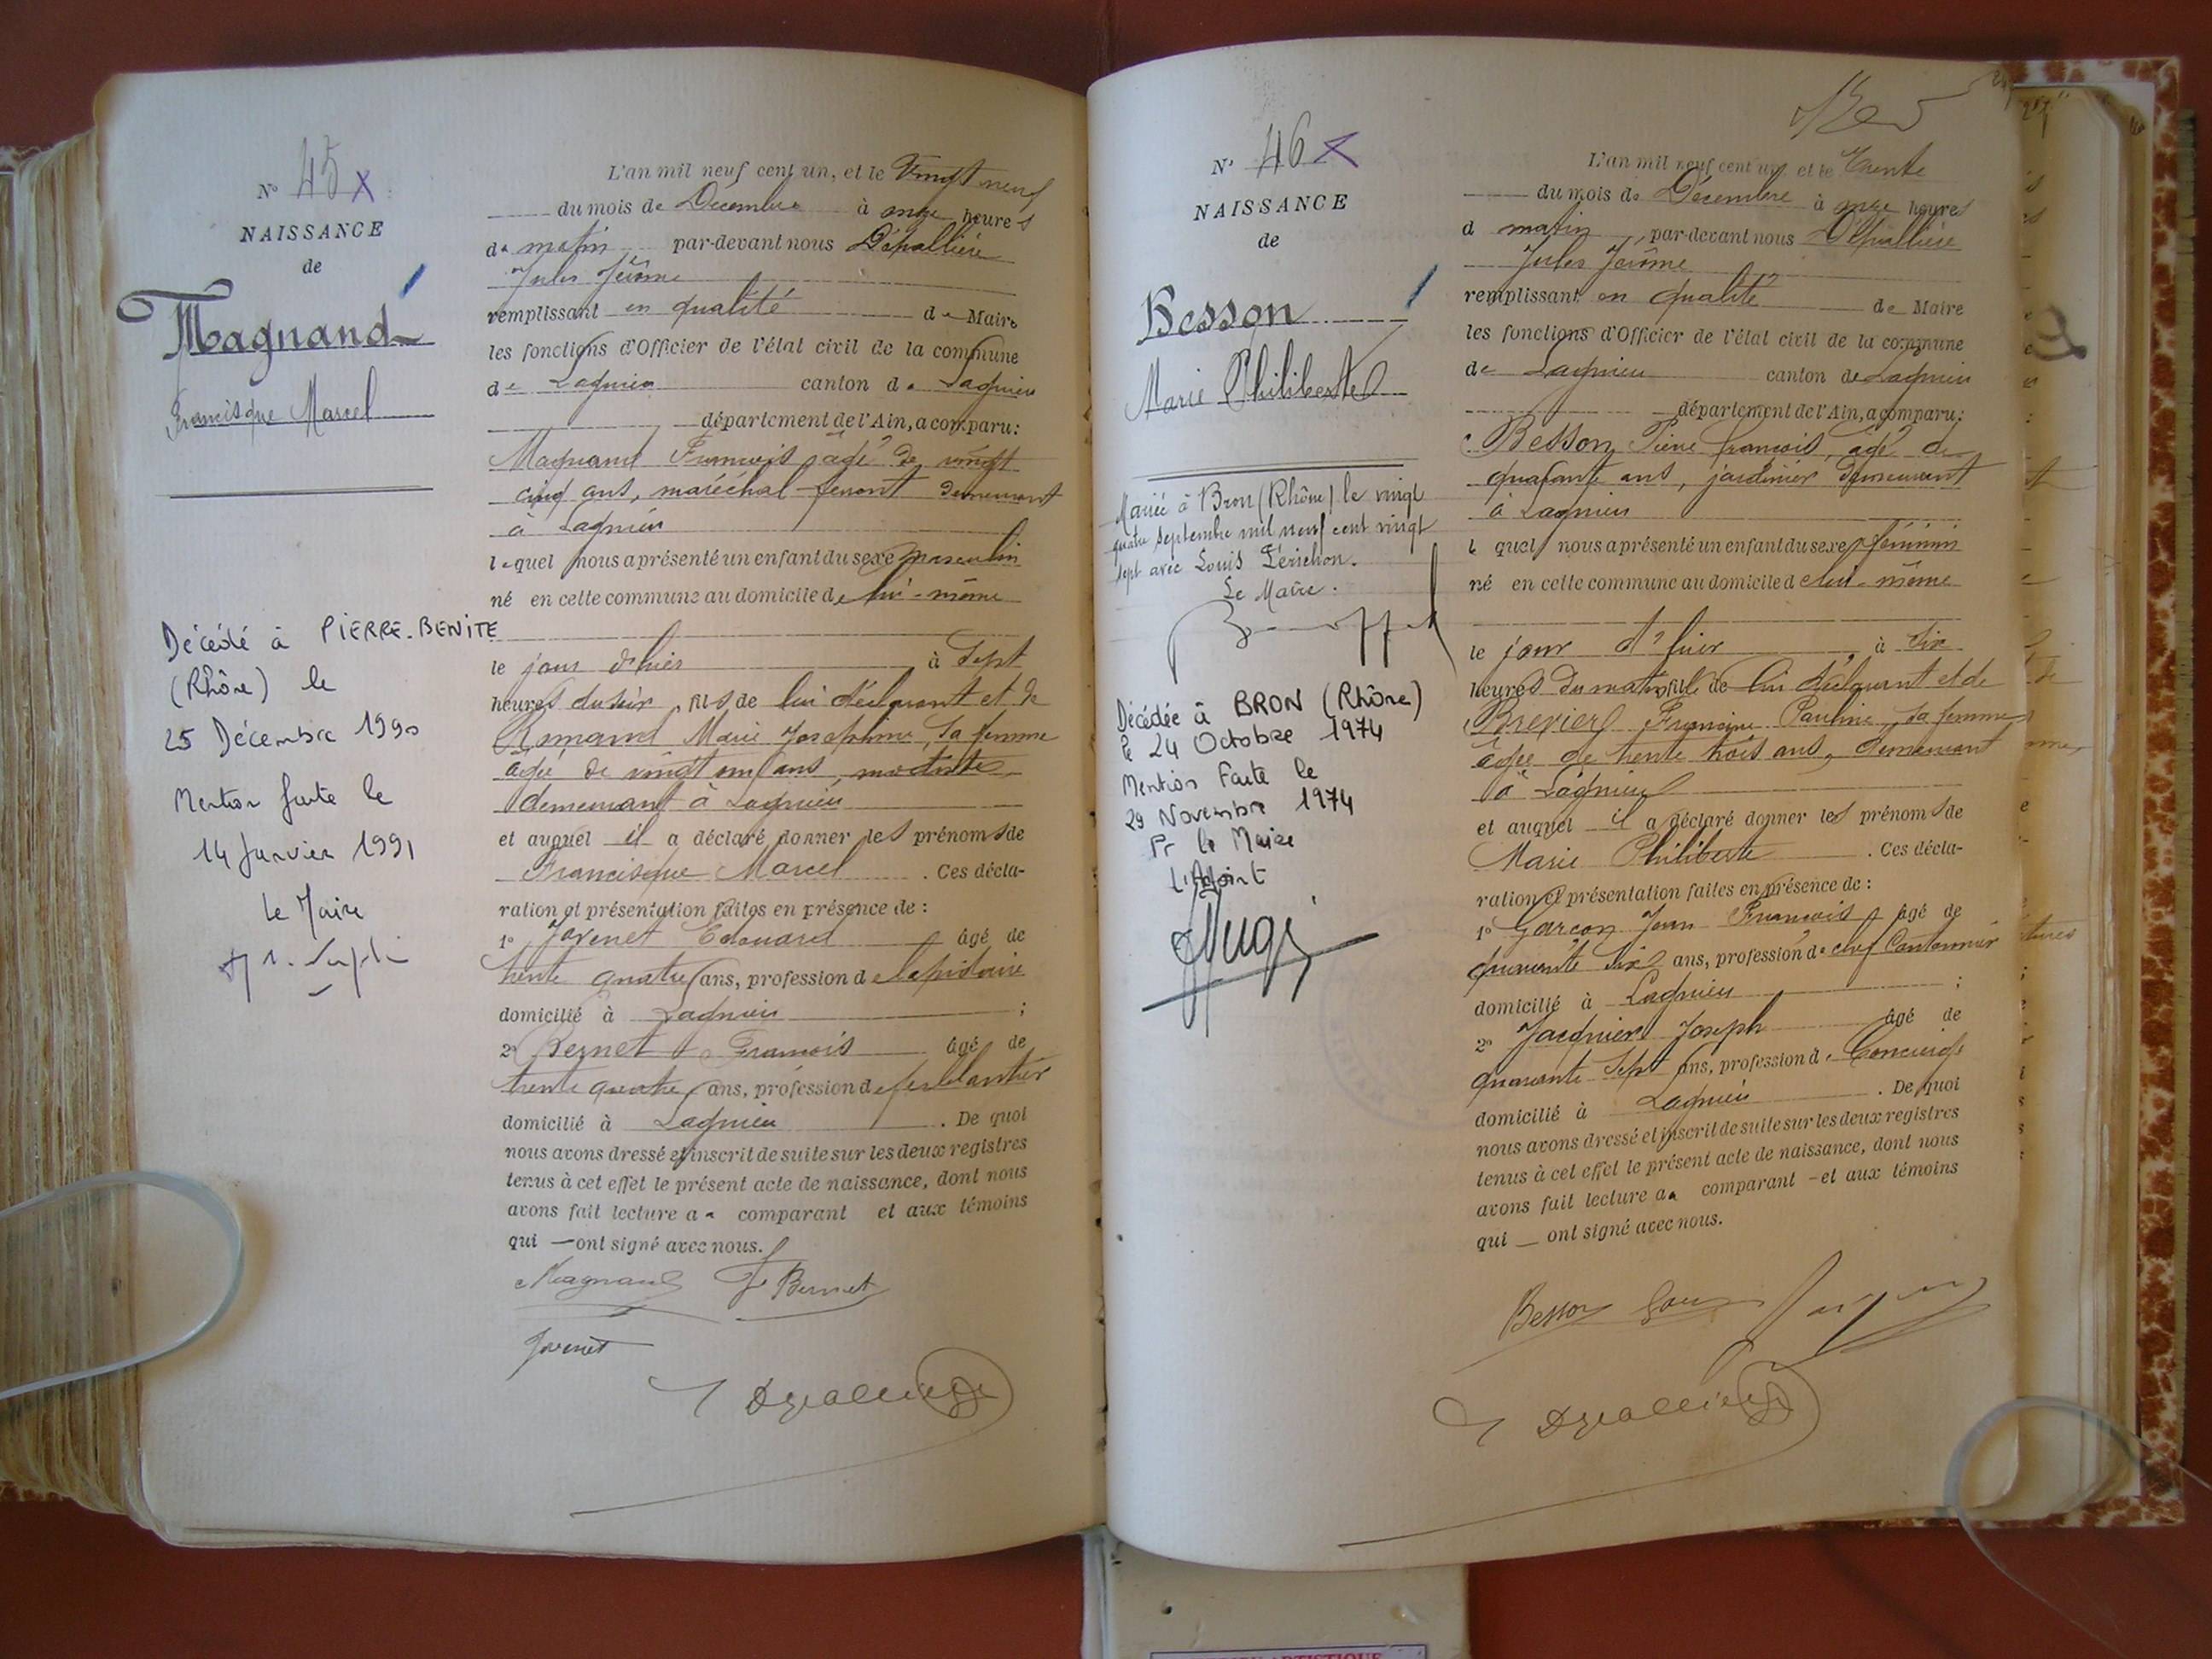 N° 45 X
NAISSANCE
de
Magnand
Francisque Marcel
Décédé à PIERRE-BENITE
(Rhône) le
25 Décembre 1990
Mention faite le
14 Janvier 1991
Le Maire
L'an mil neuf cent un, et le Vingt neuf
du mois de Décembre à onze heures
du matin par-devant nous Dépallière
Jules Jérôme
remplissant en qualité de Maire
les fonctions d'Officier de l'état civil de la commune
de Lagnieu canton de Lagnieu
département de l'Ain, a comparu:
Magnand François âgé de vingt
cinq ans, maréchal ferrant demeurant
à Lagnieu
lequel nous a présenté un enfant du sexe masculin
né en cette commune au domicile de lui-même
le jour d'hier à Sept
heures du soir, fils de lui déclarant et de
Romand Marie Josephine, sa femme
âgée de vingt un ans, modiste
demeurant à Lagnieu
et auquel il a déclaré donner les prénoms de
Francisque Marcel. Ces décla-
ration et présentation faites en présence de:
1° Javenet Edouard âgé de
trente quatre ans, profession de lapidaire
domicilié à Lagnieu;
2° Bernet François âgé de
trente quatre ans, profession de ferblantier
domicilié à Lagnieu. De quoi
nous avons dressé et inscrit de suite sur les deux registres
tenus à cet effet le présent acte de naissance, dont nous
avons fait lecture au comparant et aux témoins
qui — ont signé avec nous.
Magnand F Bernet
Javenet
J Dépallière
N° 46 X
NAISSANCE
de
Besson
Marie Philiberte
Mariée à Bron (Rhône) le vingt
quatre septembre mil neuf cent vingt
sept avec Louis Périchon.
Le Maire.
Décédée à BRON (Rhône)
le 24 Octobre 1974
Mention faite le
29 Novembre 1974
Pr le Maire
L'Adjoint
L'an mil neuf cent un et le Trente
du mois de Décembre à onze heures
d matin par-devant nous Dépallière
Jules Jérôme
remplissant en qualité de Maire
les fonctions d'Officier de l'état civil de la commune
de Lagnieu canton de Lagnieu
département de l'Ain, a comparu:
Besson Pierre François, âgé de
quarante ans, jardinier demeurant
à Lagnieu
lequel nous a présenté un enfant du sexe féminin
né en cette commune au domicile de lui-même
le jour d'hier, à dix
heures du matin fille de lui déclarant et de
Brevier Françoise Pauline, sa femme
âgée de trente trois ans, demeurant
à Lagnieu
et auquel il a déclaré donner les prénoms de
Marie Philiberte. Ces décla-
ration et présentation faites en présence de:
1° Garçon Jean François âgé de
quarante six ans, profession de chef Cantonnier
domicilié à Lagnieu;
2° Jacquier Joseph âgé de
quarante sept ans, profession de Concierge
domicilié à Lagnieu. De quoi
nous avons dressé et inscrit de suite sur les deux registres
tenus à cet effet le présent acte de naissance, dont nous
avons fait lecture au comparant - et aux témoins
qui — ont signé avec nous.
Besson
J Dépallière